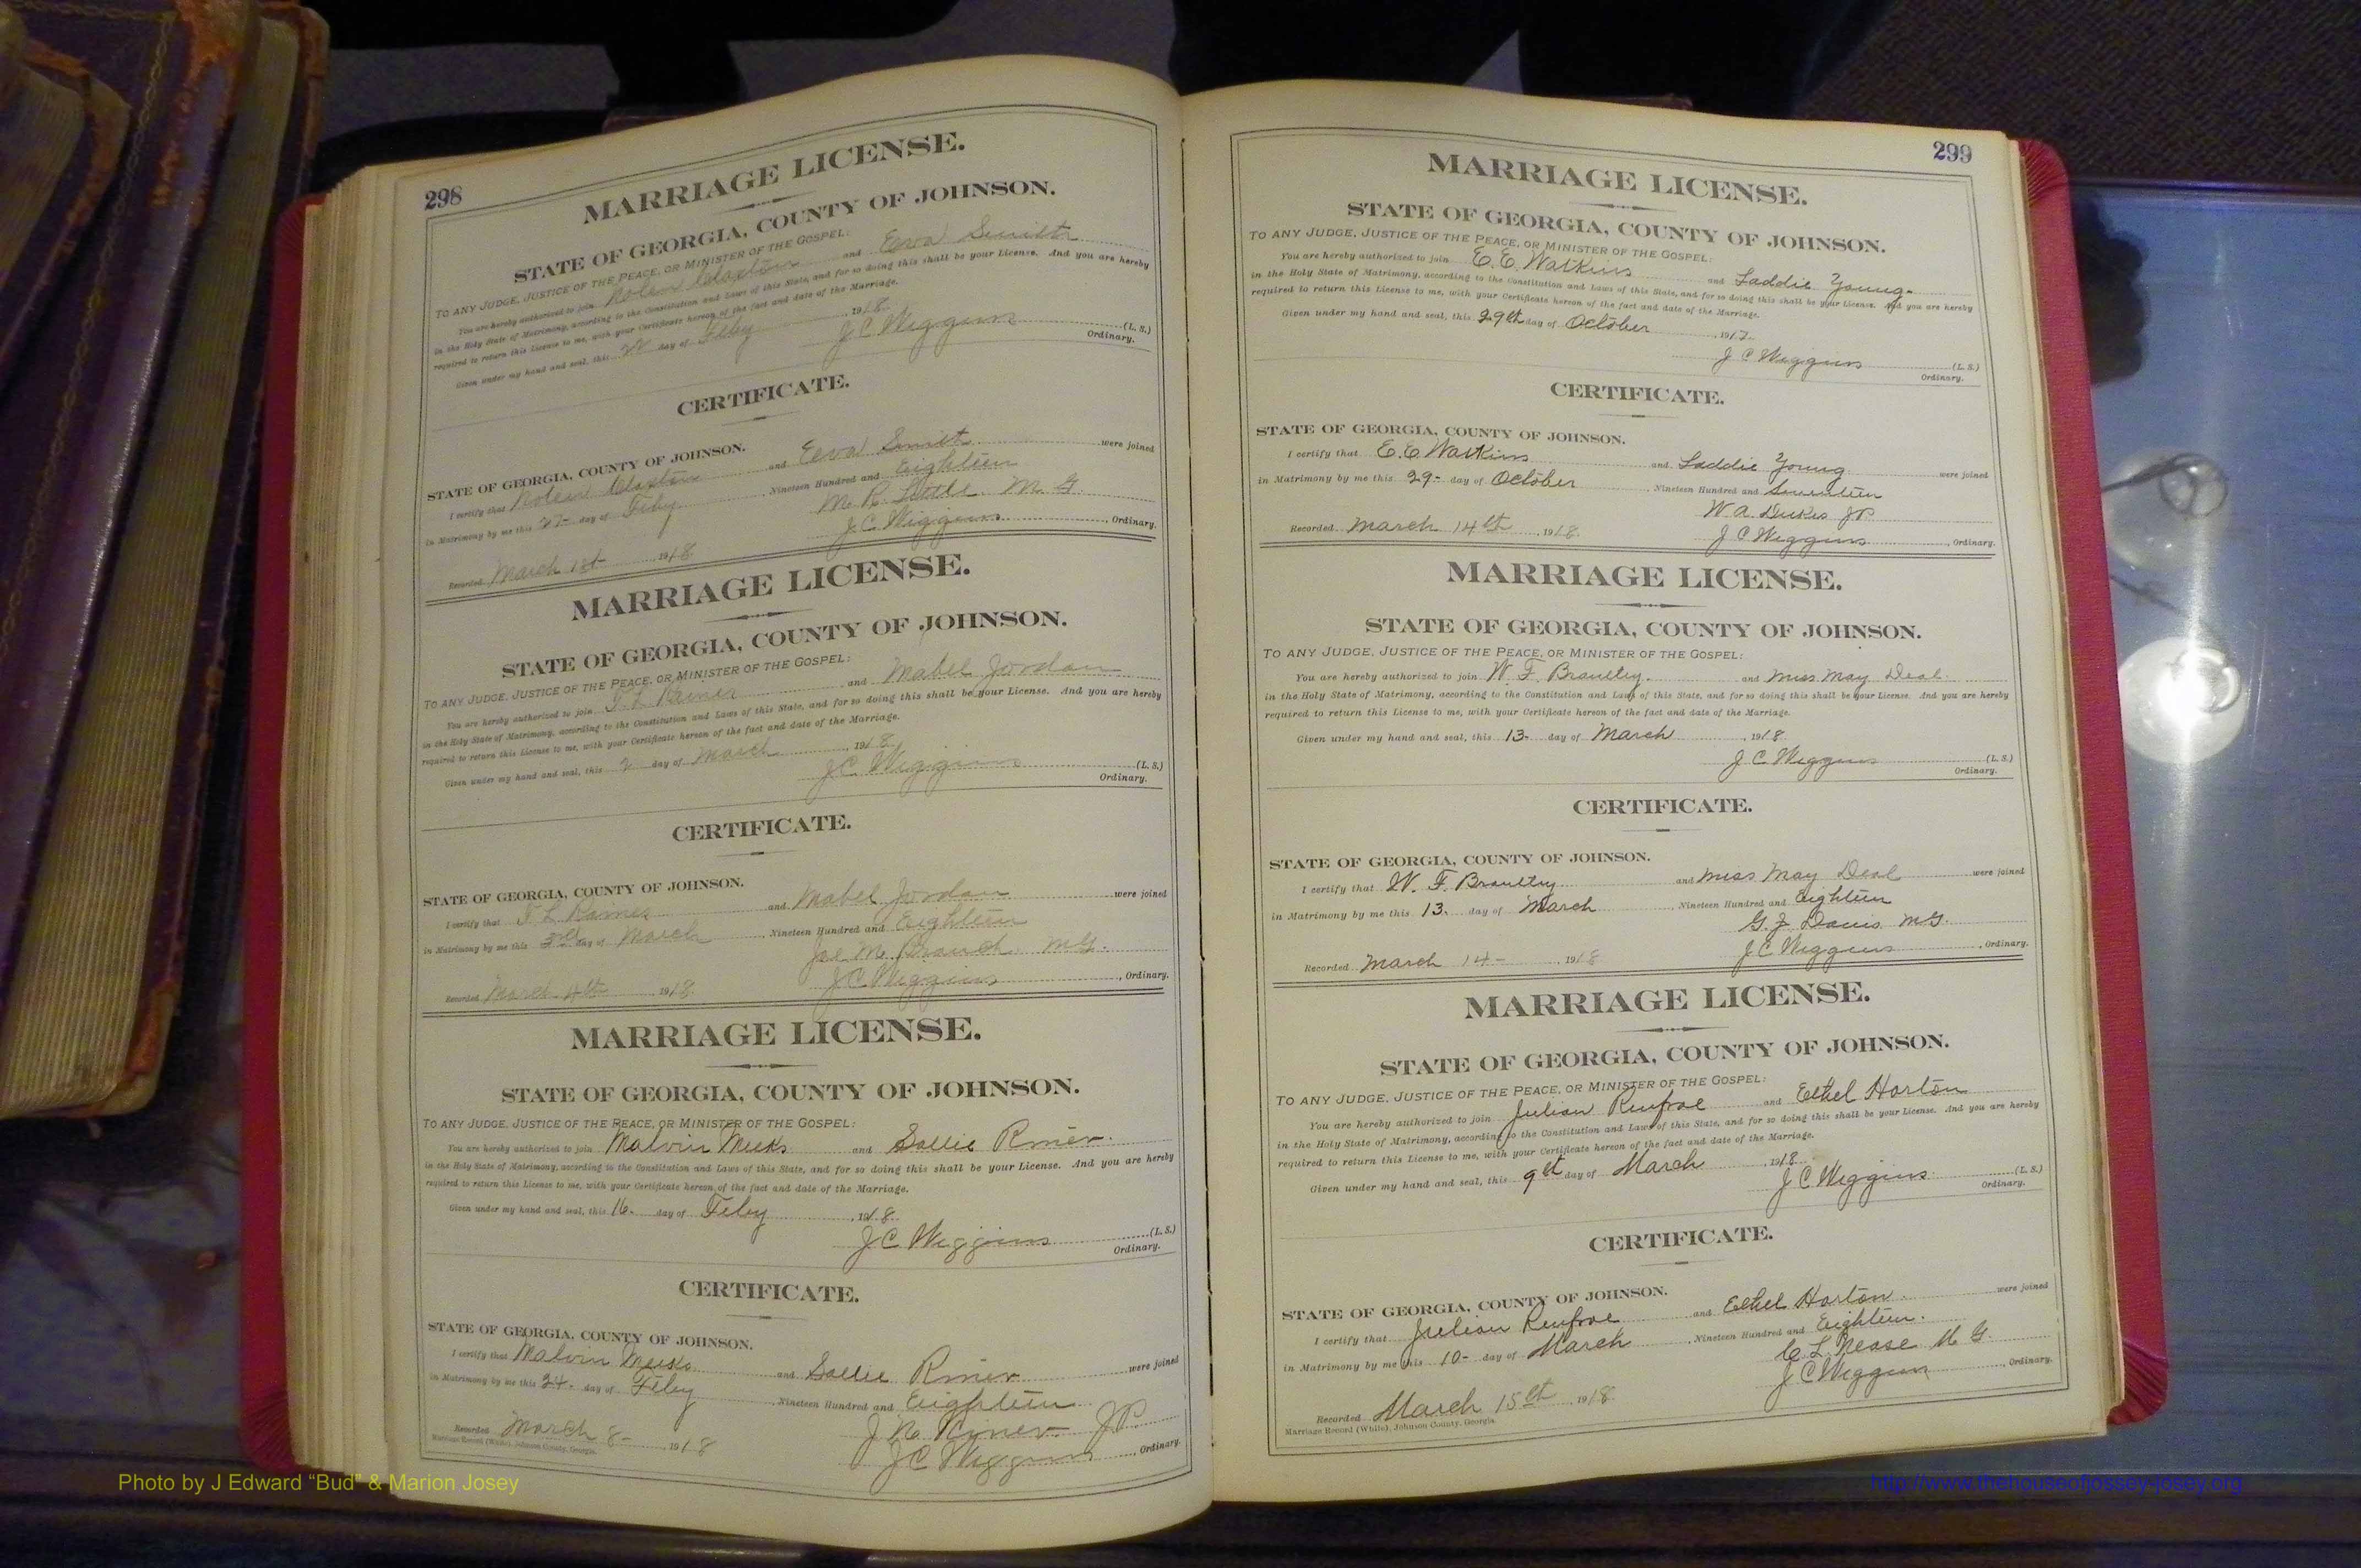 298
MARRIAGE LICENSE.
STATE OF GEORGIA, COUNTY OF JOHNSON.
TO ANY JUDGE, JUSTICE OF THE PEACE, OR MINISTER OF THE GOSPEL:
You are hereby authorized to join Nolen Claxton and Eeva Smith
in the Holy State of Matrimony, according to the Constitution and Laws of this State, and for so doing this shall be your License. And you are hereby
required to return this License to me, with your Certificate hereon of the fact and date of the Marriage.
Given under my hand and seal, this day of Feby 1918.
J C Wiggins (L. S.)
Ordinary.
CERTIFICATE.
STATE OF GEORGIA, COUNTY OF JOHNSON.
I certify that Nolen Claxton and Eeva Smith were joined
in Matrimony by me this 27- day of Feby, Nineteen Hundred and Eighteen
M. R. Little. M. G.
Recorded March 1st 1918 J C Wiggins, Ordinary.
MARRIAGE LICENSE.
STATE OF GEORGIA, COUNTY OF JOHNSON.
TO ANY JUDGE, JUSTICE OF THE PEACE, OR MINISTER OF THE GOSPEL:
You are hereby authorized to join Raines and Mabel Jordan
in the Holy State of Matrimony, according to the Constitution and Laws of this State, and for so doing this shall be your License. And you are hereby
required to return this License to me, with your Certificate hereon of the fact and date of the Marriage.
Given under my hand and seal, this 2 day of March, 1918.
J C Wiggins (L. S.)
Ordinary.
CERTIFICATE.
STATE OF GEORGIA, COUNTY OF JOHNSON.
I certify that Raines and Mabel Jordan were joined
in Matrimony by me this 3rd day of March, Nineteen Hundred and Eighteen
Joe M. Branch. M G.
Recorded March 4th 1918. J C Wiggins, Ordinary.
MARRIAGE LICENSE.
STATE OF GEORGIA, COUNTY OF JOHNSON.
TO ANY JUDGE, JUSTICE OF THE PEACE, OR MINISTER OF THE GOSPEL:
You are hereby authorized to join Malvin Meeks and Sallie Riner.
in the Holy State of Matrimony, according to the Constitution and Laws of this State, and for so doing this shall be your License. And you are hereby
required to return this License to me, with your Certificate hereon of the fact and date of the Marriage.
Given under my hand and seal, this 16. day of Feby, 1918.
J C Wiggins (L. S.)
Ordinary.
CERTIFICATE.
STATE OF GEORGIA, COUNTY OF JOHNSON.
I certify that Malvin Meeks and Sallie Riner were joined
in Matrimony by me this 24. day of Feby, Nineteen Hundred and Eighteen
J R. Riner. J P
Recorded March 8- 1918 J C Wiggins, Ordinary.
Marriage Record (White), Johnson County, Georgia.
299
MARRIAGE LICENSE.
STATE OF GEORGIA, COUNTY OF JOHNSON.
TO ANY JUDGE, JUSTICE OF THE PEACE, OR MINISTER OF THE GOSPEL:
You are hereby authorized to join E. E. Watkins and Laddie Young.
in the Holy State of Matrimony, according to the Constitution and Laws of this State, and for so doing this shall be your License. And you are hereby
required to return this License to me, with your Certificate hereon of the fact and date of the Marriage.
Given under my hand and seal, this 29th day of October, 1917.
J C Wiggins (L. S.)
Ordinary.
CERTIFICATE.
STATE OF GEORGIA, COUNTY OF JOHNSON.
I certify that E. E. Watkins and Laddie Young were joined
in Matrimony by me this 29- day of October, Nineteen Hundred and Seventeen
W. A. Dukes JP
Recorded March 14th, 1918. J C Wiggins, Ordinary.
MARRIAGE LICENSE.
STATE OF GEORGIA, COUNTY OF JOHNSON.
TO ANY JUDGE, JUSTICE OF THE PEACE, OR MINISTER OF THE GOSPEL:
You are hereby authorized to join W. F. Brantley. and Miss May Deal.
in the Holy State of Matrimony, according to the Constitution and Laws of this State, and for so doing this shall be your License. And you are hereby
required to return this License to me, with your Certificate hereon of the fact and date of the Marriage.
Given under my hand and seal, this 13- day of March, 1918.
J C Wiggins (L. S.)
Ordinary.
CERTIFICATE.
STATE OF GEORGIA, COUNTY OF JOHNSON.
I certify that W. F. Brantley and Miss May Deal were joined
in Matrimony by me this 13. day of March, Nineteen Hundred and Eighteen
G. J. Davis M G.
Recorded March 14- 1918 J C Wiggins, Ordinary.
MARRIAGE LICENSE.
STATE OF GEORGIA, COUNTY OF JOHNSON.
TO ANY JUDGE, JUSTICE OF THE PEACE, OR MINISTER OF THE GOSPEL:
You are hereby authorized to join Julian Renfroe and Ethel Horton
in the Holy State of Matrimony, according to the Constitution and Laws of this State, and for so doing this shall be your License. And you are hereby
required to return this License to me, with your Certificate hereon of the fact and date of the Marriage.
Given under my hand and seal, this 9th day of March, 1918.
J C Wiggins (L. S.)
Ordinary.
CERTIFICATE.
STATE OF GEORGIA, COUNTY OF JOHNSON.
I certify that Julian Renfroe and Ethel Horton. were joined
in Matrimony by me this 10- day of March, Nineteen Hundred and Eighteen.
C. L. Nease M G.
J C Wiggins, Ordinary.
Recorded March 15th, 1918.
Marriage Record (White), Johnson County, Georgia.
Photo by J Edward “Bud” & Marion Josey
http://www.thehouseofjossey-josey.org